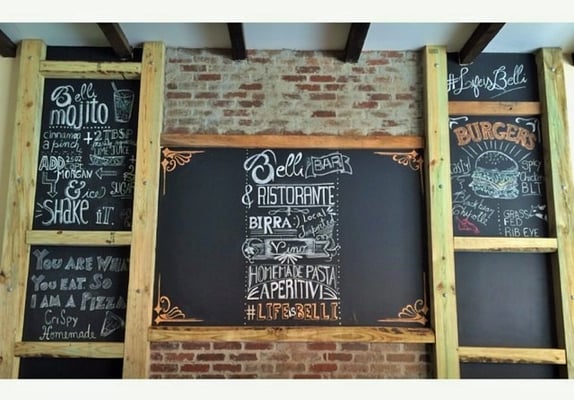 Belli
mojito
cinnamon
a pinch
+2 TBSP
LIME JUICE
ADD 2.5oz
MORGAN
SUGAR
& ice
SHAKE IT
YOU ARE WHAT
YOU EAT SO
I AM A PIZZA
CRISPY
Homemade
Belli BAR
& RISTORANTE
BIRRA local
Imported
Vino
HOMEMADE PASTA
APERITIVI
#LIFEisBELLI
#LifeisBelli
BURGERS
Tasty
Spicy
Chicken
BLT
Black bean
Chipotle
GRASS
FED
RIB EYE